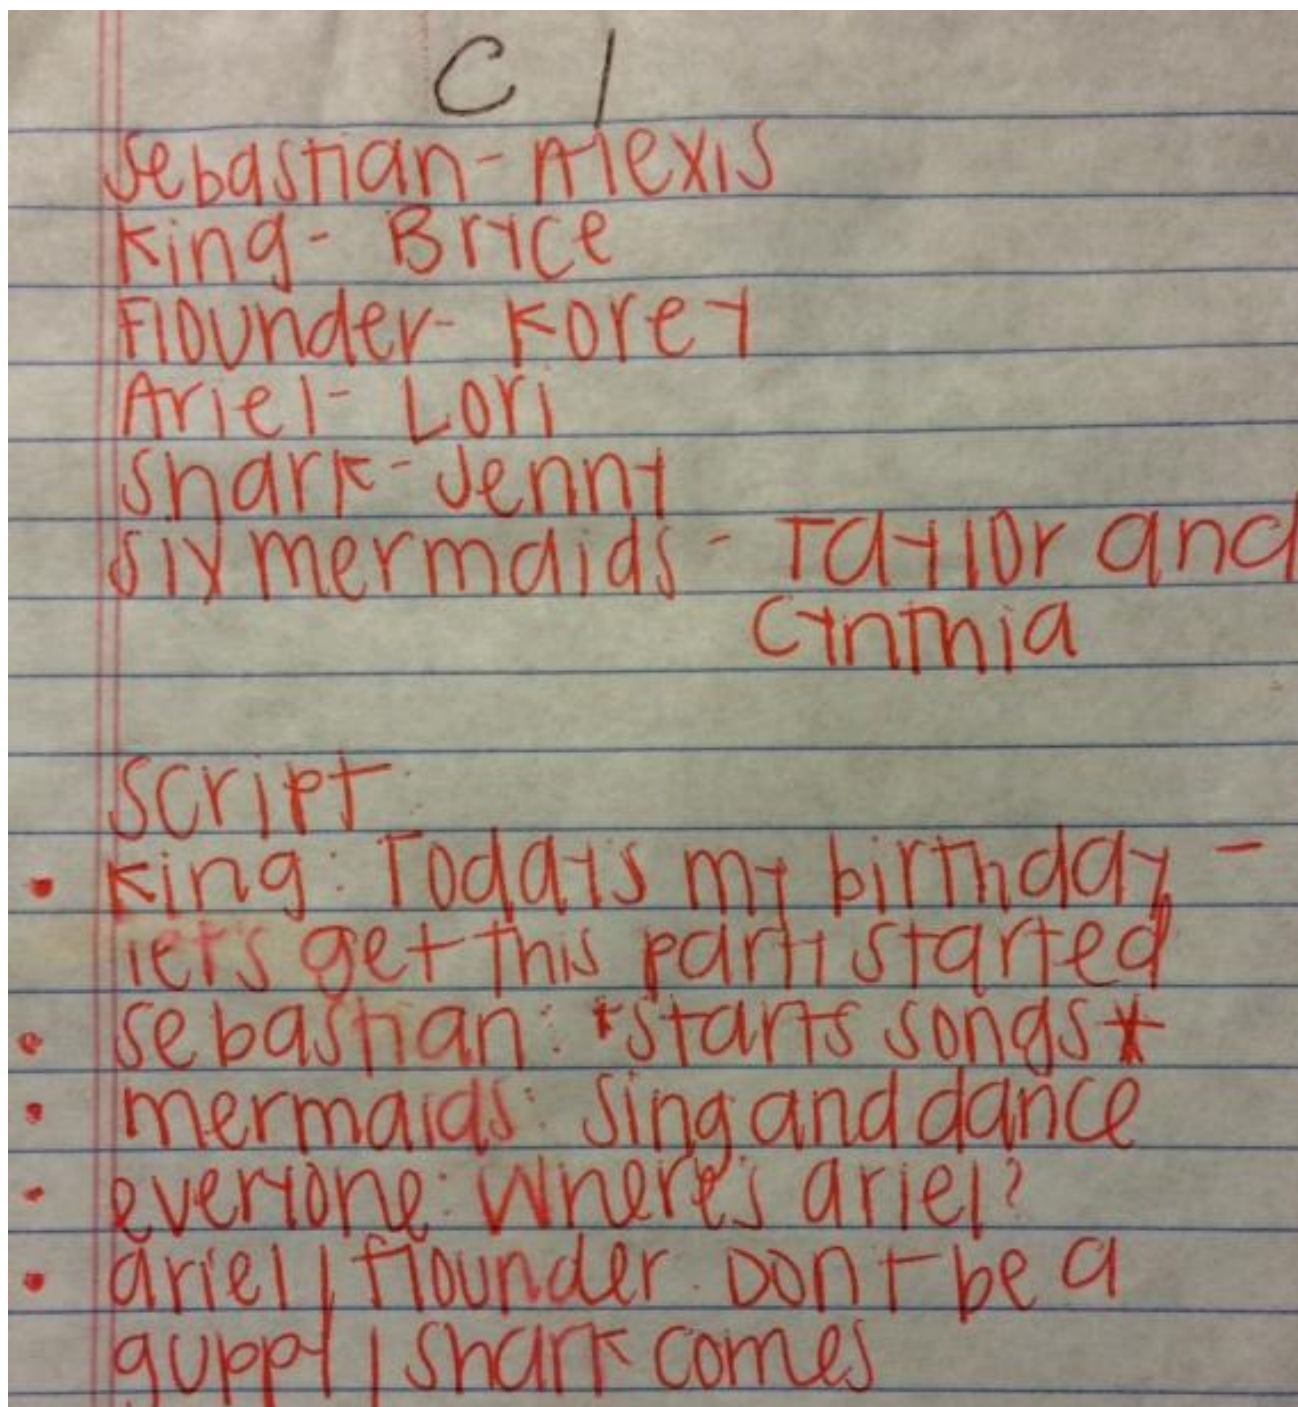 C 1
Sebastian - Alexis
King - Bryce
Flounder - Korey
Ariel - Lori
Shark - Jenny
Six mermaids - Taylor and
Cynthia
Script
• King: Todays my birthday -
let's get this party started
• Sebastian: *starts songs*
• mermaids: sing and dance
• everyone: Where's ariel?
• ariel | flounder: Don't be a
guppy | shark comes